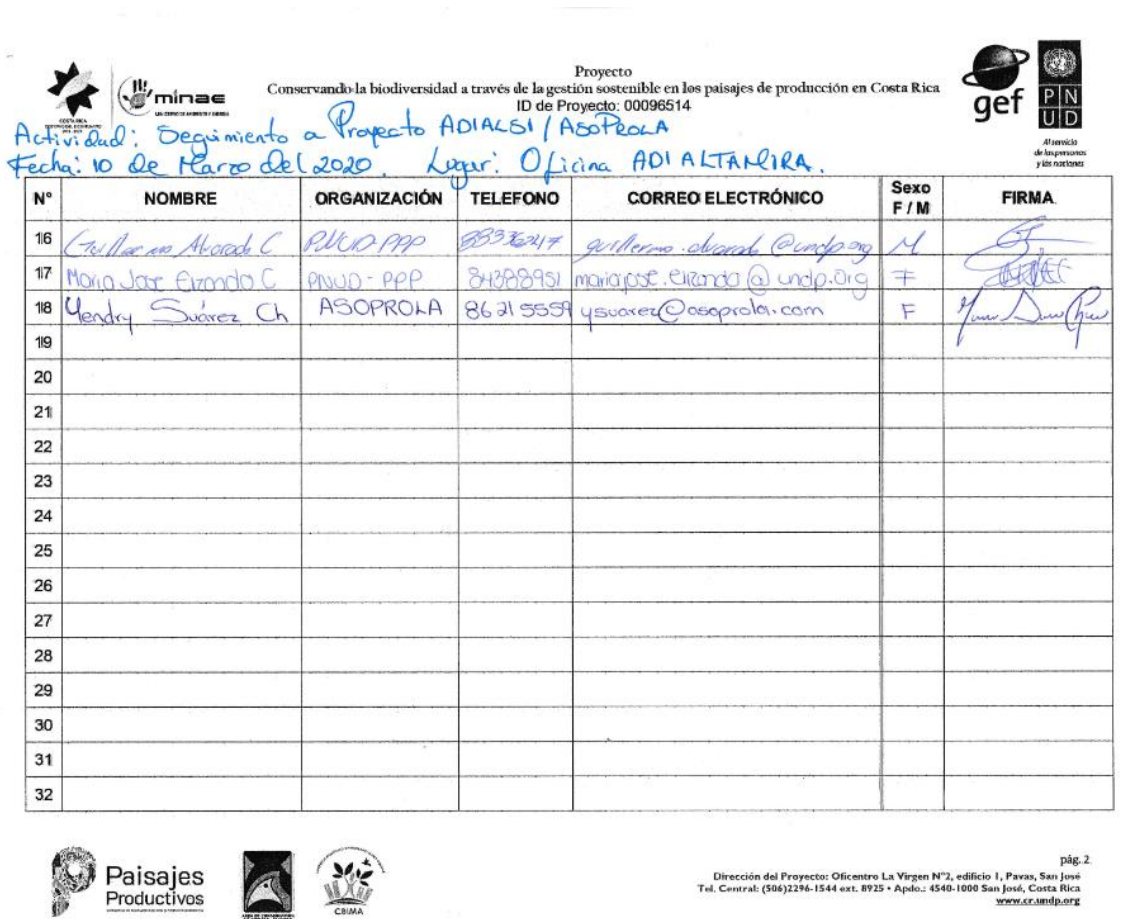 Proyecto
Conservando la biodiversidad a través de la gestión sostenible en los paisajes de producción en Costa Rica
ID de Proyecto: 00096514
minae
gef
PN
UD
Al servicio
de las personas
y las naciones
Actividad: Seguimiento a Proyecto ADIALSI / ASOPROLA
Fecha: 10 de Marzo del 2020. Lugar: Oficina ADI ALTAMIRA.
N° NOMBRE ORGANIZACIÓN TELEFONO CORREO ELECTRÓNICO Sexo F / M FIRMA
16 Guillermo Alvarado C PNUD-PPP 88336247 guillermo.alvarado@undp.org M
17 Maria Jose Elizondo C PNUD-PPP 84388951 mariajose.elizondo@undp.org F
18 Yendry Suárez Ch ASOPROLA 86215559 ysuarez@asoprola.com F
19
20
21
22
23
24
25
26
27
28
29
30
31
32
Paisajes
Productivos
CBIMA
pág. 2
Dirección del Proyecto: Oficentro La Virgen N°2, edificio 1, Pavas, San José
Tel. Central: (506)2296-1544 ext. 8925 • Apdo.: 4540-1000 San José, Costa Rica
www.cr.undp.org